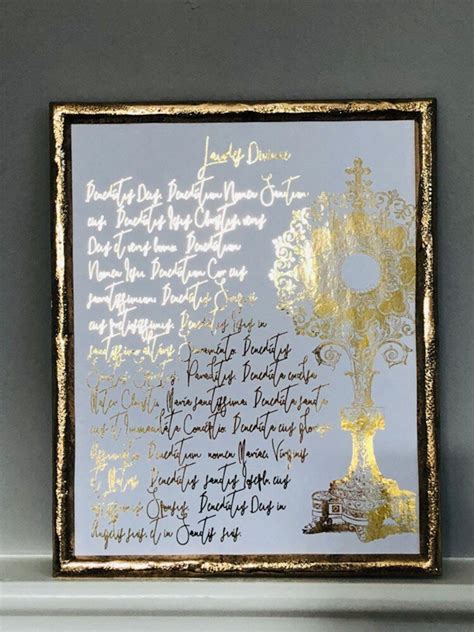 Laudes Divinae
Benedictus Deus. Benedictum Nomen Sanctum
eius. Benedictus Iesus Christus verus
Deus et verus homo. Benedictum
Nomen Iesu. Benedictum Cor eius
sacratissimum. Benedictus Sanguis
eius pretiosissimus. Benedictus Iesus in
sanctissimo altaris Sacramento. Benedictus
Sanctus Spiritus, Paraclitus. Benedicta excelsa
Mater Christi, Maria sanctissima. Benedicta sancta
eius et Immaculata Conceptio. Benedicta eius gloriosa
Assumptio. Benedictum nomen Mariae, Virginis
et Matris. Benedictus sanctus Ioseph, eius
Sponsus. Benedictus Deus in
Angelis suis, et in Sanctis suis.